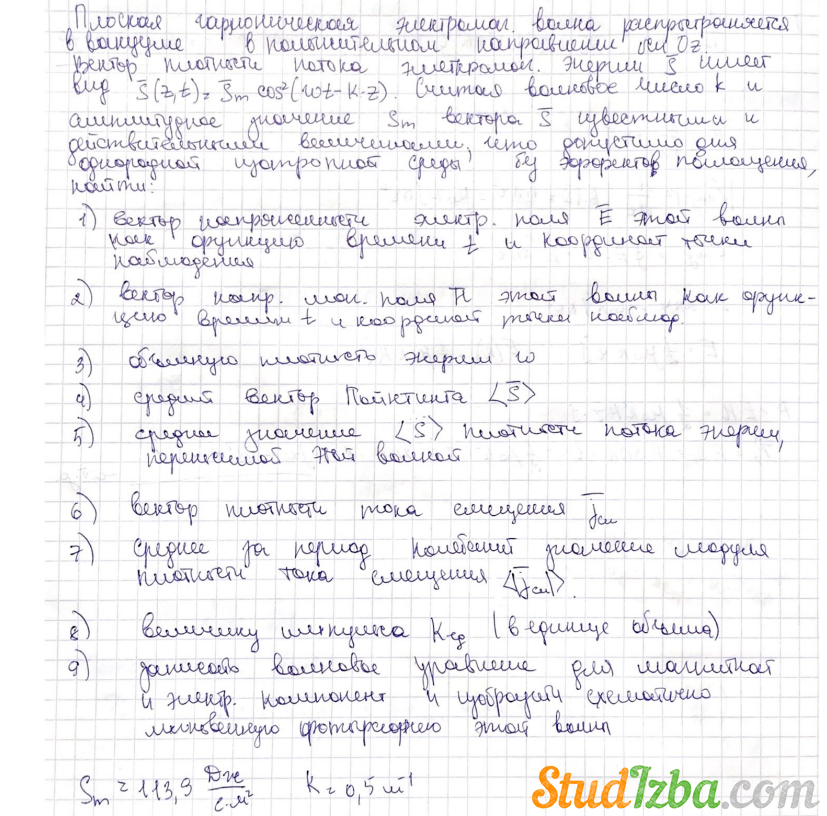 Плоская гармоническая электромаг. волна распространяется
в вакууме в положительном направлении оси Oz.
Вектор плотности потока электромагн. энергии S̄ имеет
вид S̄(z,t) = S̄m cos²(ωt-k·z). Считая волновое число k и
амплитудное значение Sm вектора S̄ известными и
действительными величинами, что допустимо для
однородной изотропной среды без эффектов поглощения,
найти:
1) вектор напряженности электр. поля Ē этой волны
как функцию времени t и координат точки
наблюдения
2) вектор напр. маг. поля H̄ этой волны как функ-
цию времени t и координат точки наблюд.
3) объемную плотность энергии ω
4) средний вектор Пойнтинга <S̄>
5) среднее значение <S̄> плотности потока энергии,
переносимой этой волной
6) вектор плотности тока смещения j̄см
7) среднее за период колебаний значение модуля
плотности тока смещения <|j̄см|>.
8) величину импульса Kед (в единице объема)
9) записать волновое уравнение для магнитной
и электр. компонент и изобразить схематично
мгновенную фотографию этой волны
Sm = 113,9 Дж/с·м² K = 0,5 м⁻¹
StudIzba.com